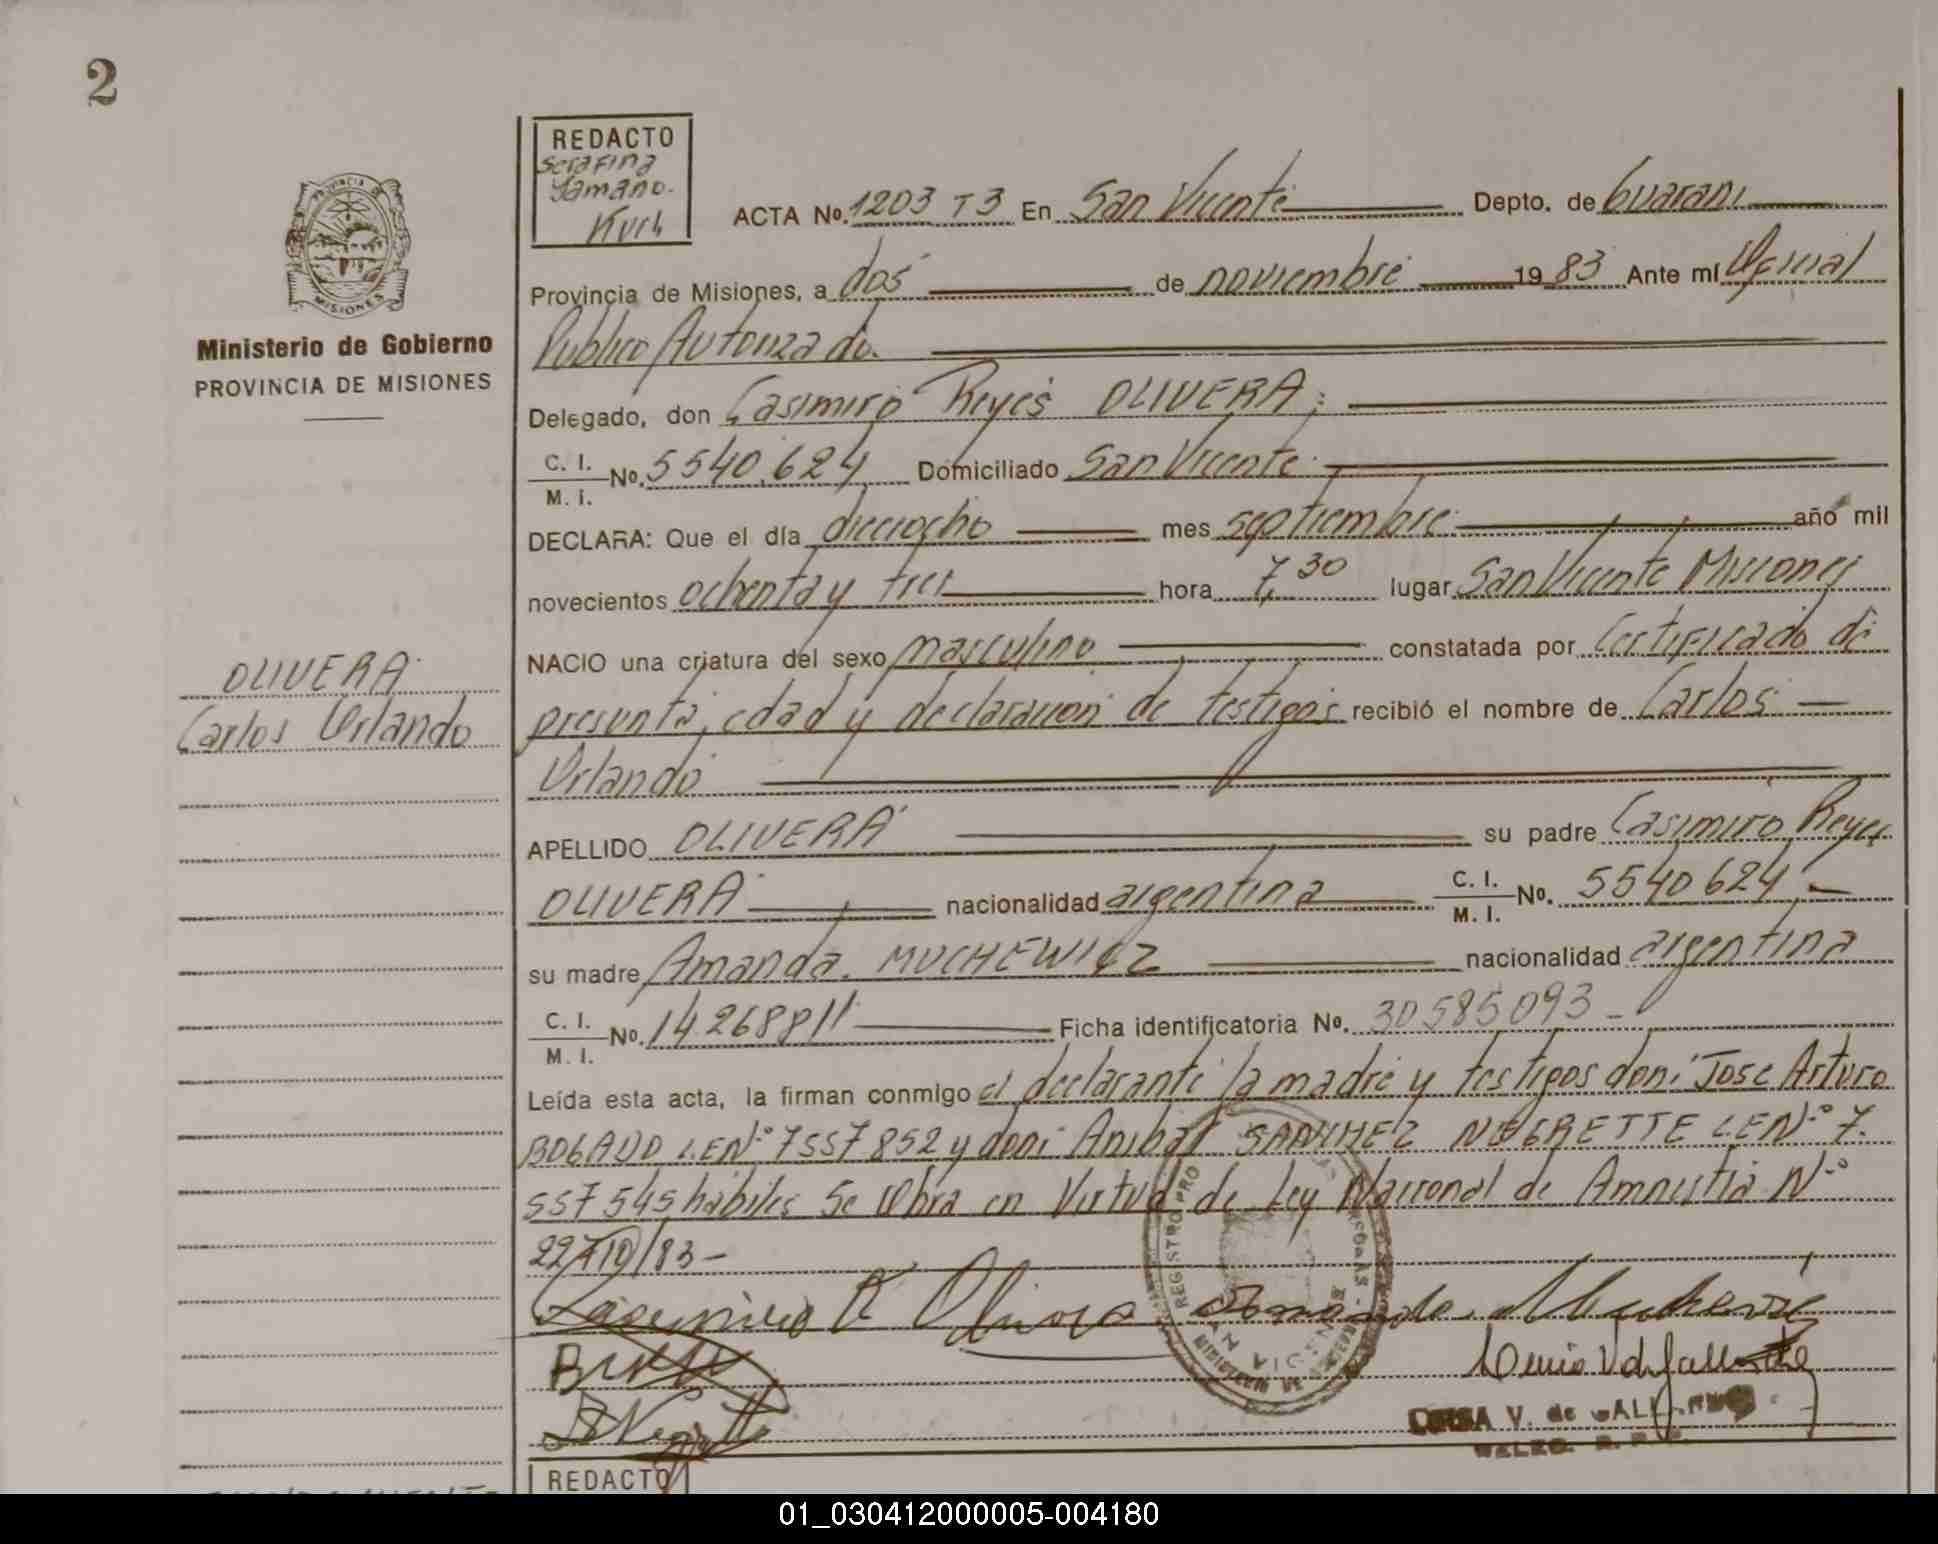 2
REDACTO
Serafina
Yamano.
Kuch
PROVINCIA DE
MISIONES
Ministerio de Gobierno
PROVINCIA DE MISIONES
OLIVERA
Carlos Orlando
ACTA No. 1203 T3 En San Vicente Depto. de Guarani
Provincia de Misiones, a dos de noviembre 19 83 Ante mí Oficial
Publico Autorizado.
Delegado, don Casimiro Reyes OLIVERA;
C. I.
M. I. No. 5540.624 Domiciliado San Vicente
DECLARA: Que el día dieciocho mes septiembre año mil
novecientos ochenta y tres hora 7,30 lugar San Vicente Misiones
NACIO una criatura del sexo masculino constatada por Certificado de
presunta, edad y declaración de testigos recibió el nombre de Carlos
Orlando
APELLIDO OLIVERA su padre Casimiro Reyes
OLIVERA nacionalidad argentina C. I.
M. I. No. 5540624,
su madre Amanda. MUCHEWICZ nacionalidad argentina
C. I.
M. I. No. 14.268811 Ficha identificatoria No. 30585093 -
Leída esta acta, la firman conmigo el declarante la madre y testigos don: Jose Arturo
BOGADO L.E Nº 7557852 y don: Anibal SANCHEZ NEGRETTE L.E Nº 7.
557545 habiles Se Obra en Virtud de Ley Nacional de Amnistia Nº
22710/83 -
Casimiro R Olivera Amanda Muchewicz
LUISA V. de
REDACTO
01_030412000005-004180